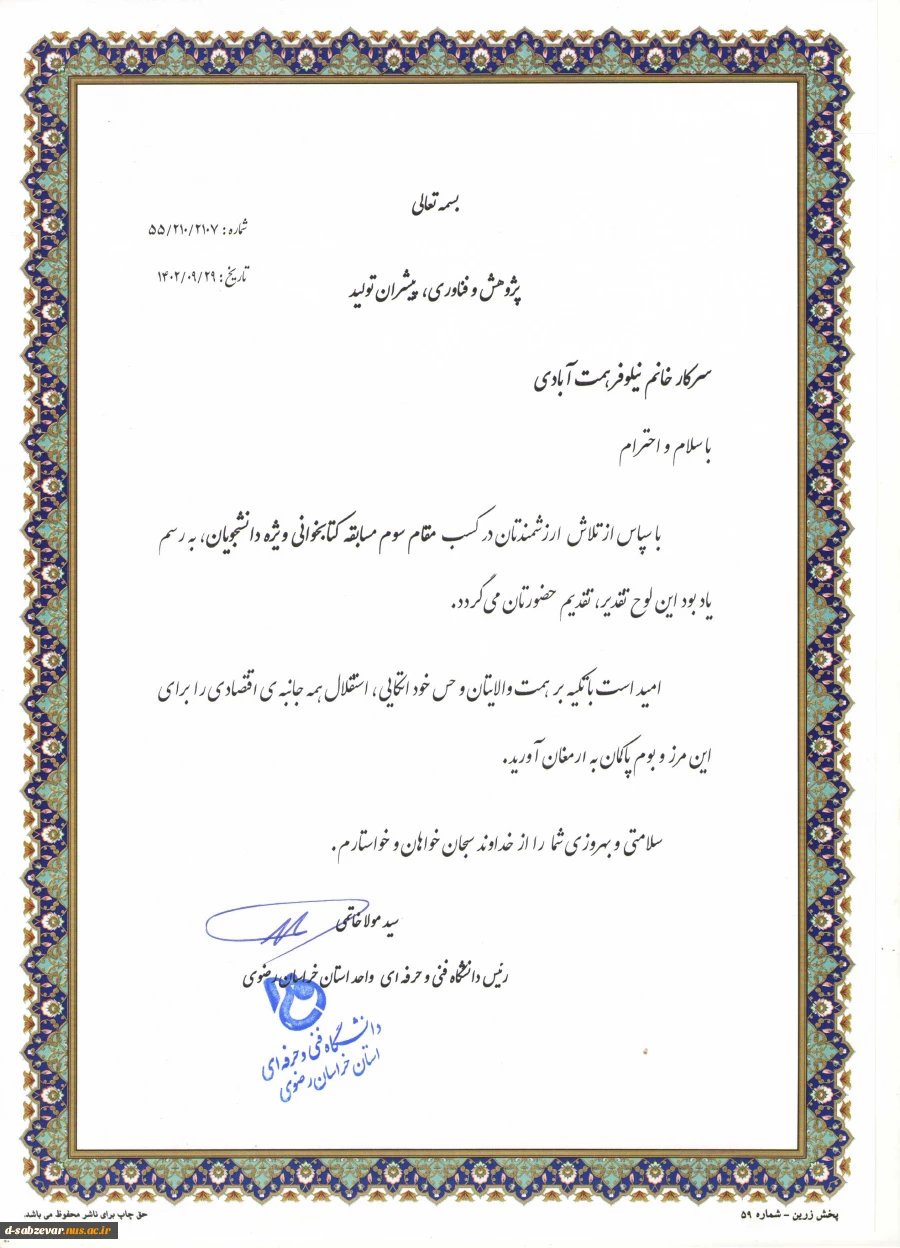 بسمه تعالی
شماره: ۵۵/۲۱۰/۲۱۰۷
تاریخ: ۱۴۰۲/۰۹/۲۹
پژوهش و فناوری، پیشران تولید
سرکار خانم نیلوفر همت آبادی
با سلام و احترام
با سپاس از تلاش ارزشمندتان در کسب مقام سوم مسابقه کتابخوانی ویژه دانشجویان، به رسم
یادبود این لوح تقدیر، تقدیم حضورتان می گردد.
امید است با تکیه بر همت والایتان و حس خود اتکایی، استقلال همه جانبه ی اقتصادی را برای
این مرز و بوم پاکمان به ارمغان آورید.
سلامتی و بهروزی شما را از خداوند سبحان خواهان و خواستارم.
سید مولا خاتمی
رئیس دانشگاه فنی و حرفه ای واحد استان خراسان رضوی
دانشگاه فنی و حرفه ای
استان خراسان رضوی
پخش زرین - شماره ۵۹
حق چاپ برای ناشر محفوظ می باشد.
d-sabzevar.nus.ac.ir